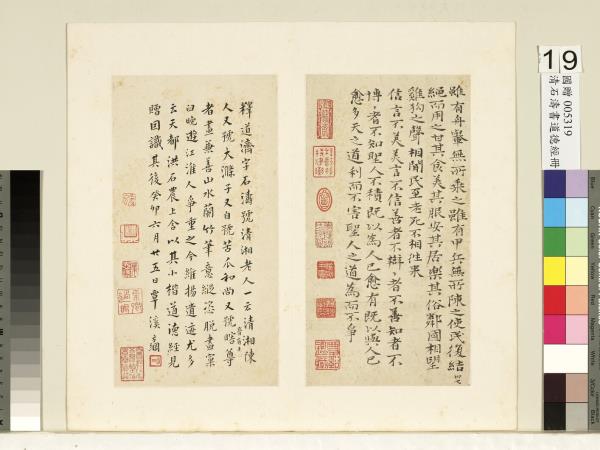 雖有舟轝無所乘之雖有甲兵無所陳之使民復結
繩而用之甘其食美其服安其居樂其俗鄰國相望
雞狗之聲相聞民至老死不相往来
信言不美美言不信善者不辯〻者不善知者不
博〻者不知聖人不積既以為人已愈有既以與人已
愈多天之道利而不害聖人之道為而不爭
釋道濟字石濤號清湘老人一云清湘陳
人又號大滌子又自號苦瓜和尚又號瞎尊
者畫兼善山水蘭竹筆意縱恣脫盡窠
臼晚遊江淮人爭重之今維揚遺迹尤多
云天都洪石農上舍以其小楷道德經見
贈因識其後癸卯六月廿五日覃溪綱
19
國贈 005319
清石濤書道德經冊
Blue
Cyan
Green
Yellow
Red
Magenta
White
3/Color
Black